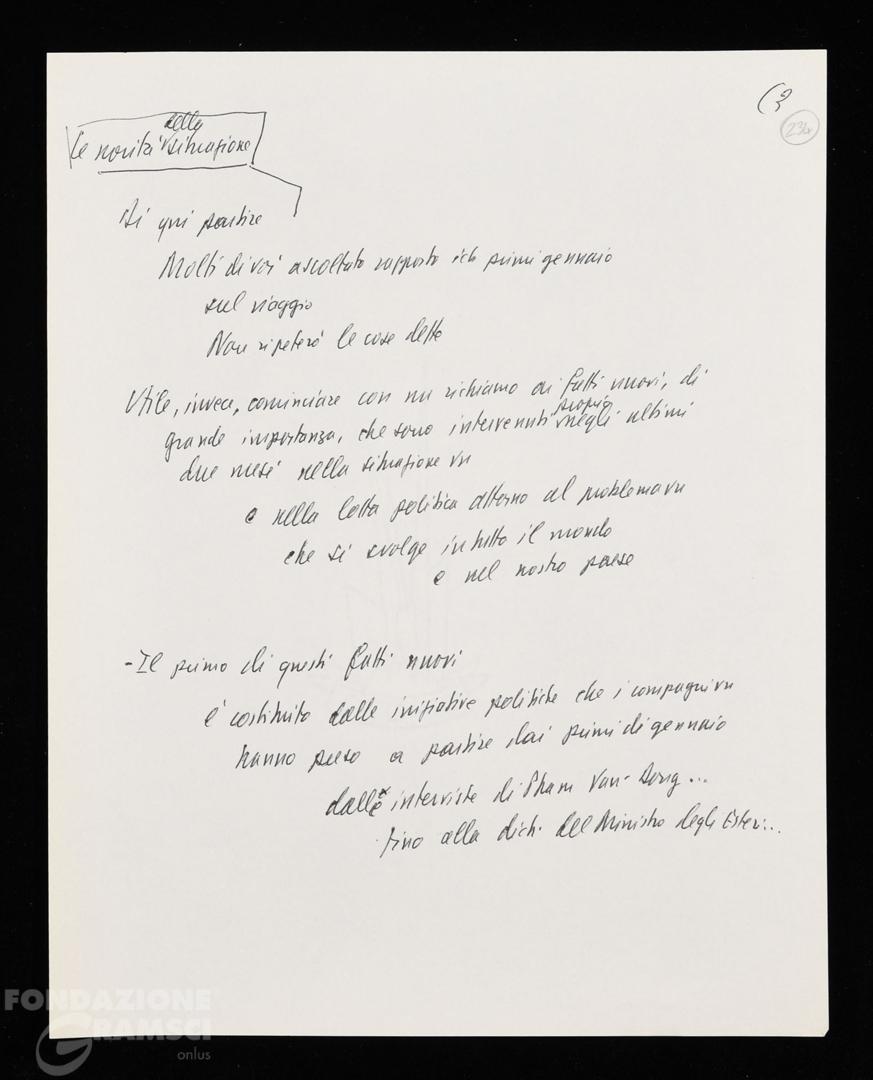 (3
234
Le novità della situazione
Di qui partire
Molti di voi ascoltato rapporto primi gennaio
sul viaggio
Non ripeterò le cose dette
Utile, invece, cominciare con un richiamo ai fatti nuovi, di
grande importanza, che sono intervenuti proprio negli ultimi
due mesi nella situazione vn
e nella lotta politica attorno al problema vn
che si svolge in tutto il mondo
e nel nostro paese
- Il primo di questi fatti nuovi
è costituito dalle iniziative politiche che i compagni vn
hanno preso a partire dai primi di gennaio
dalle interviste di Pham Van-Dong...
fino alla dich. del Ministro degli Esteri...
FONDAZIONE
GRAMSCI
onlus